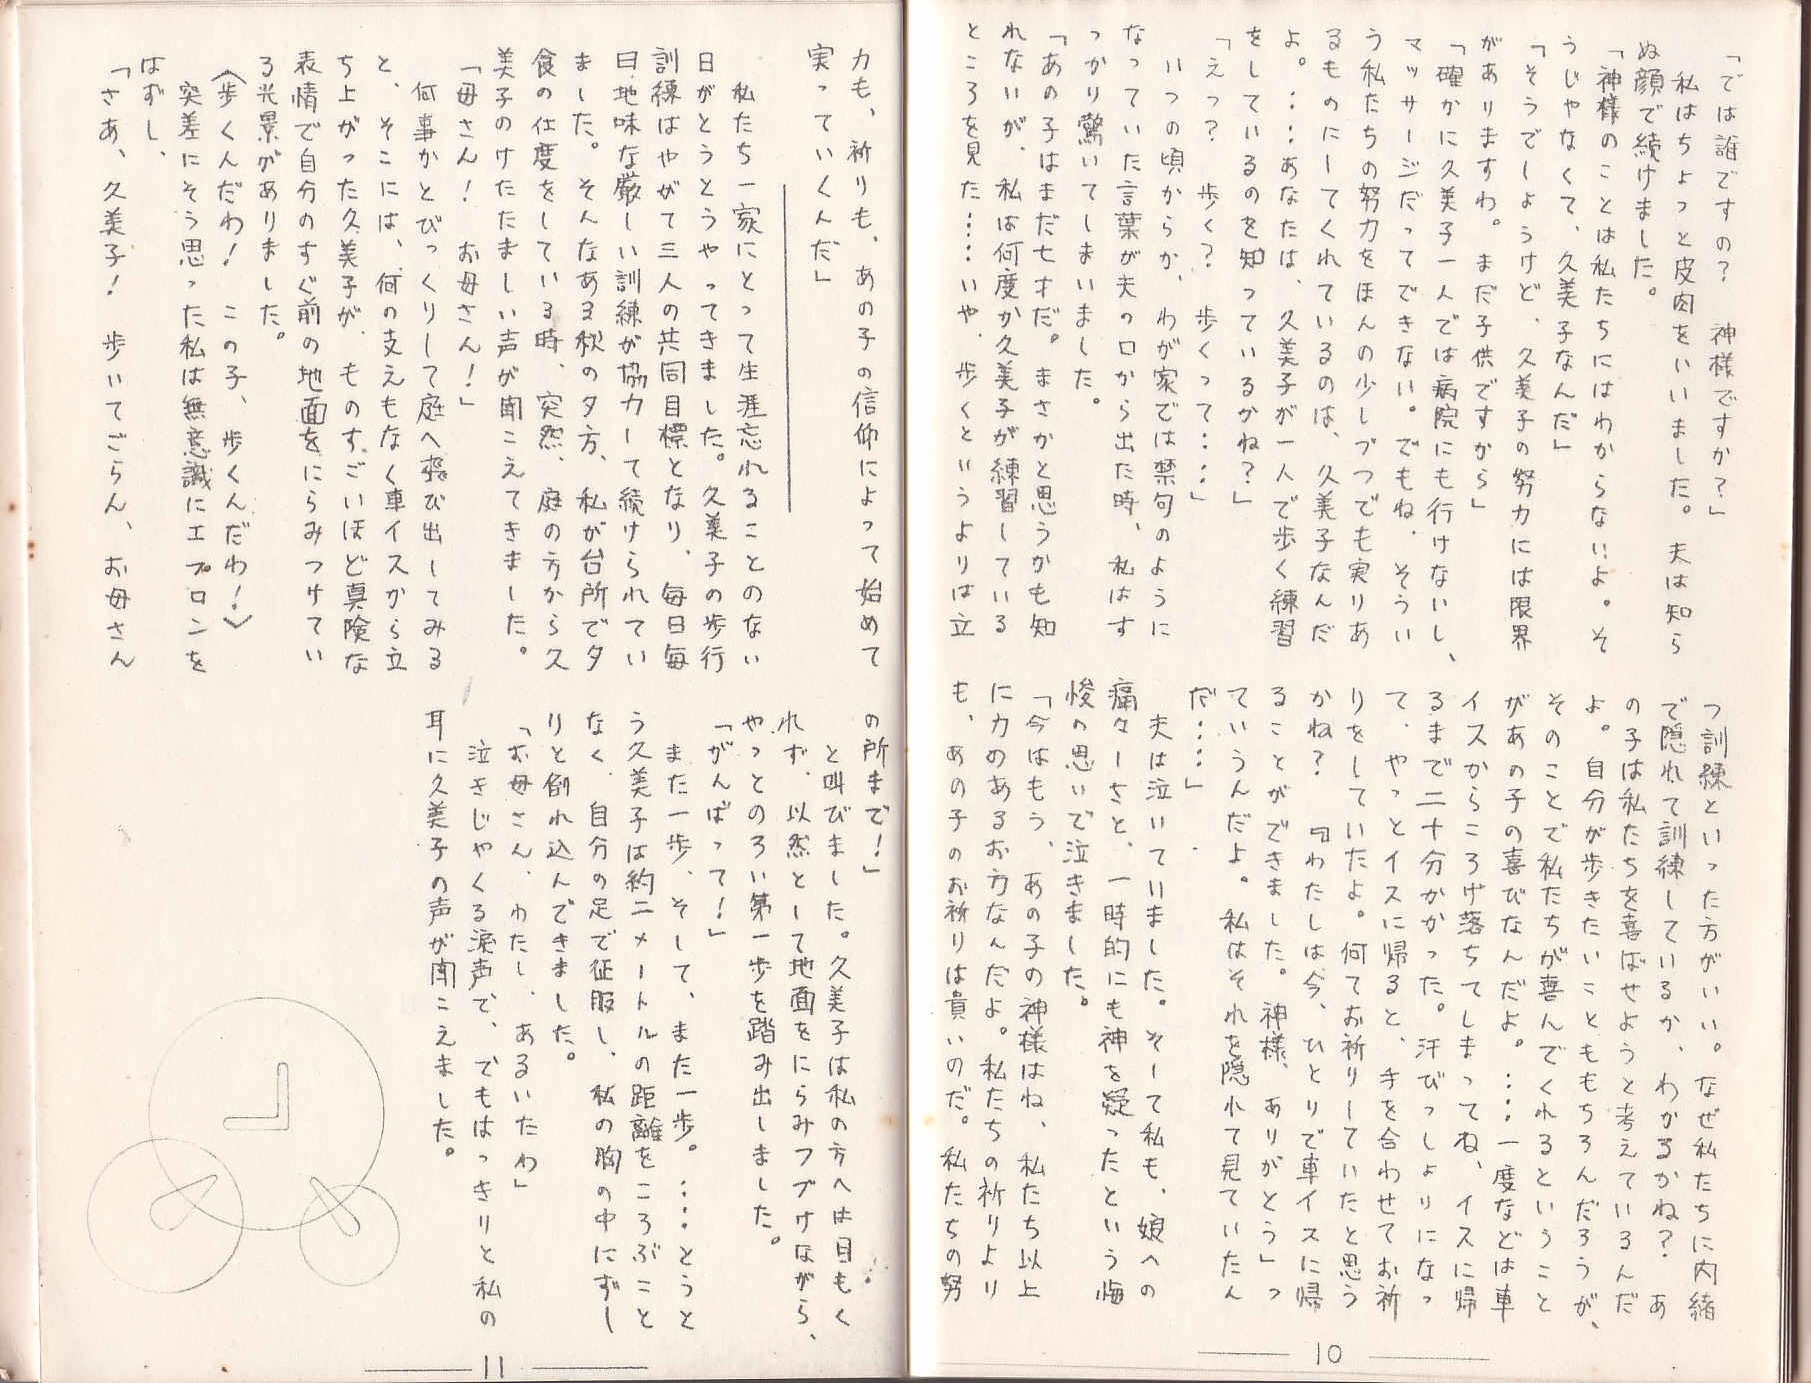 「では誰ですの？　神様ですか？」
私はちょっと皮肉をいいました。夫は知ら
ぬ顔で続けました。
「神様のことは私たちにはわからないよ。そ
うじゃなくて、久美子なんだ」
「そうでしょうけど、久美子の努力には限界
がありますわ。まだ子供ですから」
「確かに久美子一人では病院にも行けないし、
マッサージだってできない。でもね、そうい
う私たちの努力をほんの少しづつでも実りあ
るものにしてくれているのは、久美子なんだ
よ。……あなたは、久美子が一人で歩く練習
をしているのを知っているかね？」
「えっ？　歩く？　歩くって……」
いつの頃からか、わが家では禁句のように
なっていた言葉が夫の口から出た時、私はす
っかり驚いてしまいました。
「あの子はまだ七才だ。まさかと思うかも知
れないが、私は何度か久美子が練習している
ところを見た……いや、歩くというよりは立
つ訓練といった方がいい。なぜ私たちに内緒
で隠れて訓練しているか、わかるかね？　あ
の子は私たちを喜ばせようと考えているんだ
よ。自分が歩きたいこともちろんだろうが、
そのことで私たちが喜んでくれるということ
があの子の喜びなんだよ。……一度などは車
イスからころげ落ちてしまってね、イスに帰
るまで二十分かかった。汗びっしょりになっ
て、やっとイスに帰ると、手を合わせてお祈
りをしていたよ。何てお祈りしていたと思う
かね？　『わたしは今、ひとりで車イスに帰
ることができました。神様、ありがとう』っ
ていうんだよ。私はそれを隠れて見ていたん
だ……」
夫は泣いていました。そして私も、娘への
痛々しさと、一時的にも神を疑ったという悔
悛の思いで泣きました。
「今はもう、あの子の神様はね、私たち以上
に力のあるお方なんだよ。私たちの祈りより
も、あの子のお祈りは貴いのだ。私たちの努
10
力も、祈りも、あの子の信仰によって始めて
実っていくんだ」
私たち一家にとって生涯忘れることのない
日がとうとうやってきました。久美子の歩行
訓練はやがて三人の共同目標となり、毎日毎
日地味な厳しい訓練が協力して続けられてい
ました。そんなある秋の夕方、私が台所で夕
食の仕度をしている時、突然、庭の方から久
美子のけたたましい声が聞こえてきました。
「母さん！　お母さん！」
何事かとびっくりして庭へ飛び出してみる
と、そこには、何の支えもなく車イスから立
ち上がった久美子が、ものすごいほど真険な
表情で自分のすぐ前の地面をにらみつけてい
る光景がありました。
〈歩くんだわ！　この子、歩くんだわ！〉
突差にそう思った私は無意識にエプロンを
はずし、
「さあ、久美子！　歩いてごらん、お母さん
の所まで！」
と叫びました。久美子は私の方へは目もく
れず、以然として地面をにらみつづけながら、
やっとのろい第一歩を踏み出しました。
「がんばって！」
また一歩、そして、また一歩。……とうと
う久美子は約二メートルの距離をころぶこと
なく、自分の足で征服し、私の胸の中にずし
りと倒れ込んできました。
「お母さん、わたし、あるいたわ」
泣きじゃくる涙声で、でもはっきりと私の
耳に久美子の声が聞こえました。
11